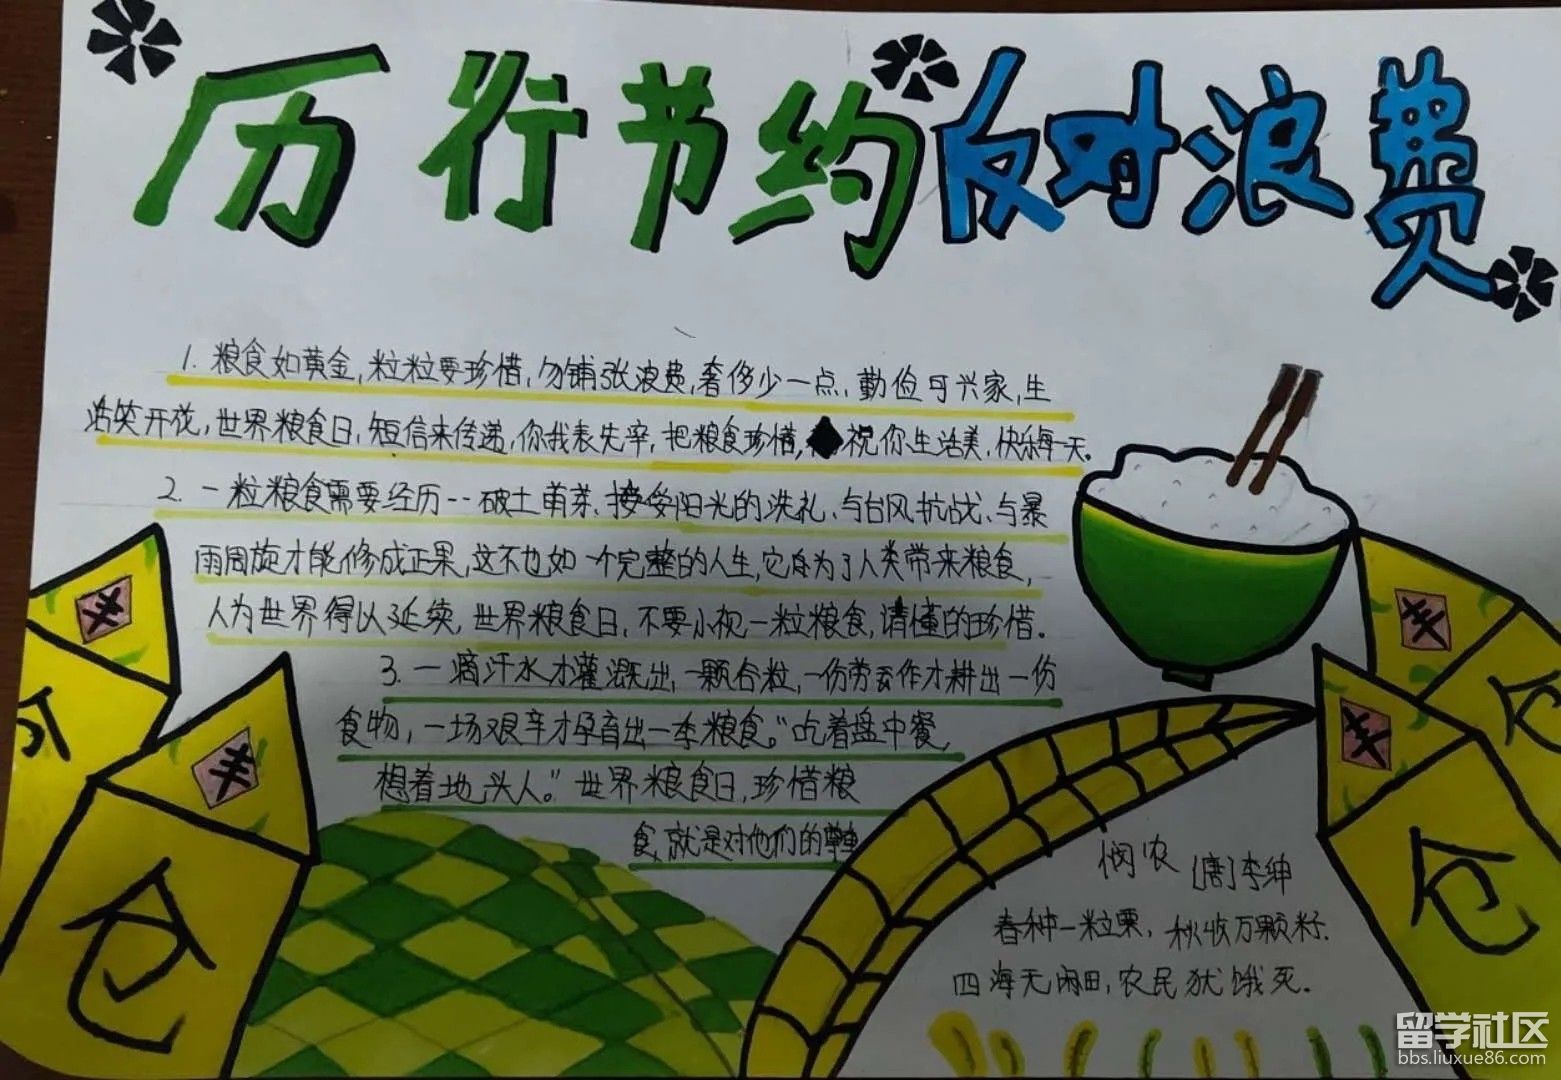 历行节约 反对浪费
1. 粮食如黄金,粒粒要珍惜,勿铺张浪费,奢侈少一点,勤俭可兴家,生
活笑开花,世界粮食日,短信来传递,你我表先率,把粮食珍惜,祝你生活美,快乐每一天。
2. 一粒粮食需要经历--破土萌芽、接受阳光的洗礼、与台风抗战、与暴
雨周旋才能修成正果,这不也如一个完整的人生,它为了人类带来粮食,
人为世界得以延续,世界粮食日,不要小视一粒粮食,请懂的珍惜。
3. 一滴汗水才灌溉出一颗谷粒,一份劳作才耕出一份
食物,一场艰辛才孕育出一季粮食。"吃着盘中餐,
想着地头人。"世界粮食日,珍惜粮
食,就是对他们的
丰
仓
丰
仓
丰
仓
丰
仓
悯农 [唐]李绅
春种一粒粟,秋收万颗籽.
四海无闲田,农民犹饿死.
留学社区
bbs.liuxue86.com